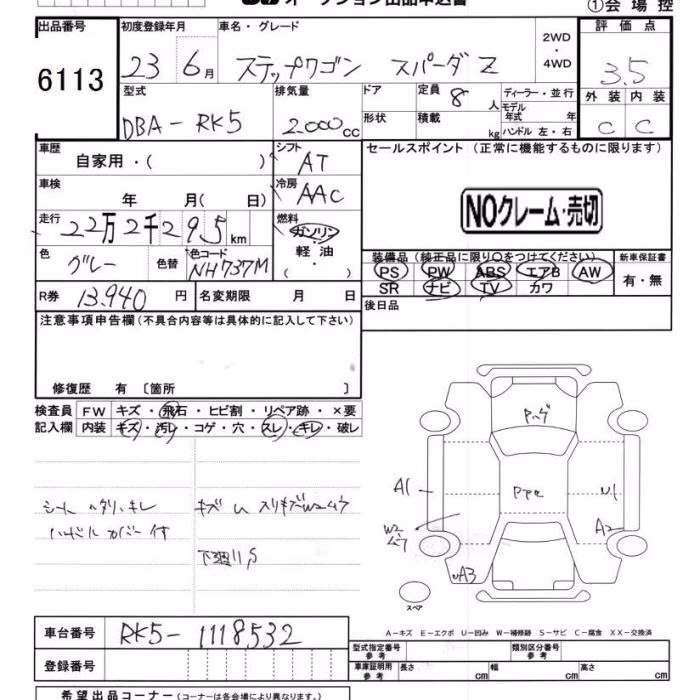 オークション出品申込書
①会場控
出品番号 初度登録年月 車名・グレード 2WD・4WD 評価点
6113 23 6月 ステップワゴン スパーダ Z 3.5
型式 排気量 ドア 定員 8人 ディーラー・並行 外装 内装
DBA-RK5 2.000cc 形状 積載 kg モデル年式 年 C C
ハンドル 左・右
車歴 自家用・( ) シフト AT セールスポイント (正常に機能するものに限ります)
車検 年 月( 日) 冷房 AAC NOクレーム・売切
走行 22万2千295km 燃料 ガソリン
色 グレー 色替 色コード NH737M 軽油 ( ・ )
装備品 (純正品に限り○をつけてください) 新車保証書
PS PW ABS エアB AW 有・無
SR ナビ TV カワ
R券 13.940円 名変期限 月 日 後日品
注意事項申告欄 (不具合内容等は具体的に記入して下さい)
修復歴 有 〔箇所 〕
検査員 FW キズ・飛石・ヒビ割・リペア跡・×要
記入欄 内装 キズ・汚レ・コゲ・穴・スレ・キレ・破レ
シート ヘタリ、キレ
ハンドル カバー付
キズ U スリキズ
下廻り S
A1 U1
W2 A2
UA3
スペア
A-キズ E-エクボ U-凹み W-補修跡 S-サビ C-腐食 XX-交換済
車台番号 RK5-1118532
型式指定番号 参考 類別区分番号 参考
登録番号 車庫証明用 参考 長さ cm 幅 cm 高さ cm
希望出品コーナー (コーナーは各会場により異なります。)